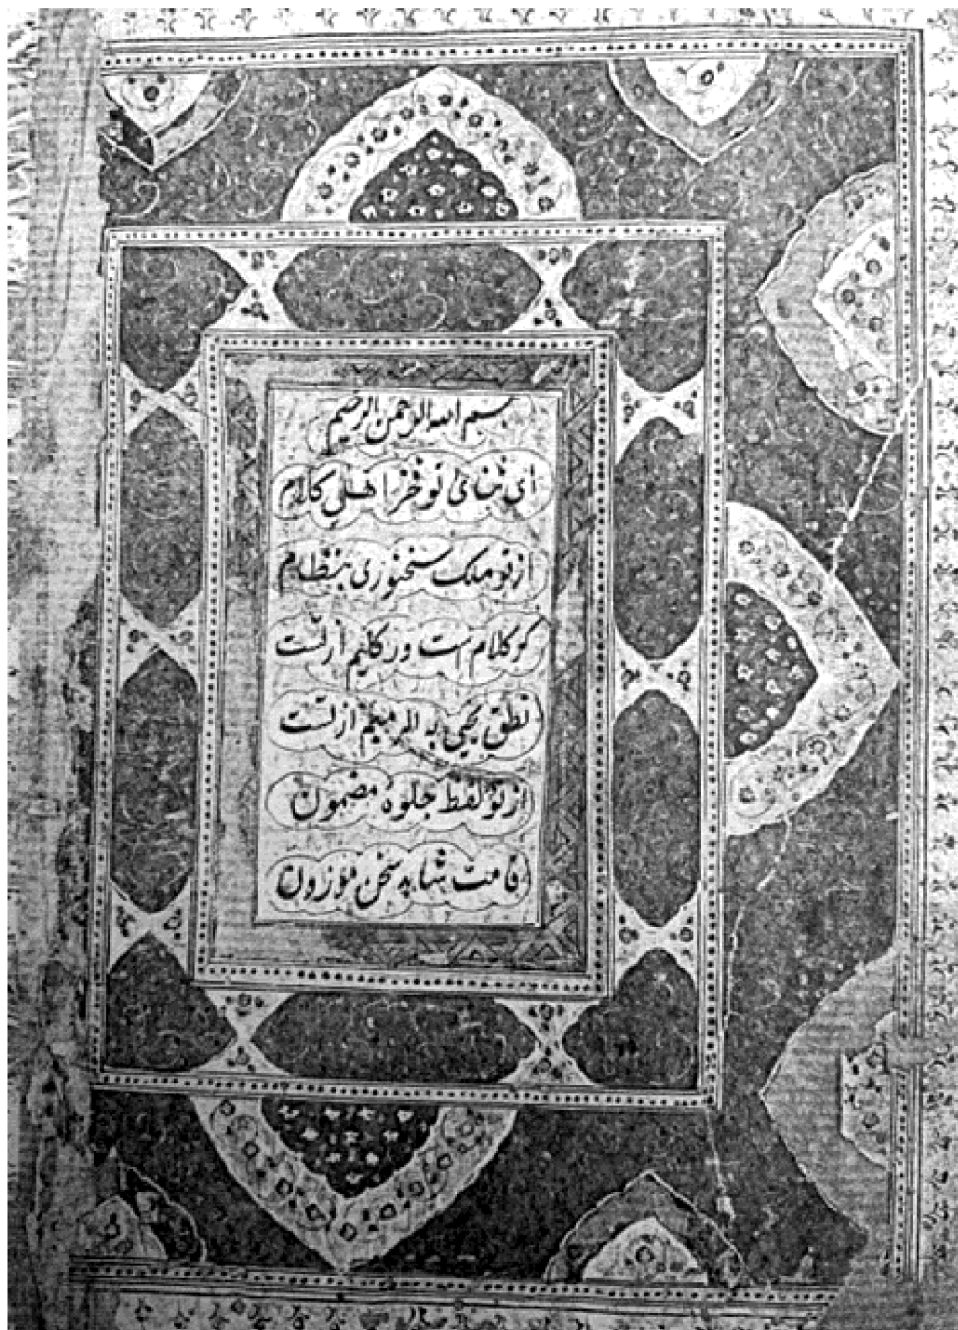 بسم الله الرحمن الرحیم
ای ثنای تو فخر اهل کلام
از تو ملک سخنوری بنظام
گر کلام ست ور کلیم از تست
نطق یحیی به المهیم از تست
از تو لفظ جلوه مضمون
قامت شاهد سخن موزون